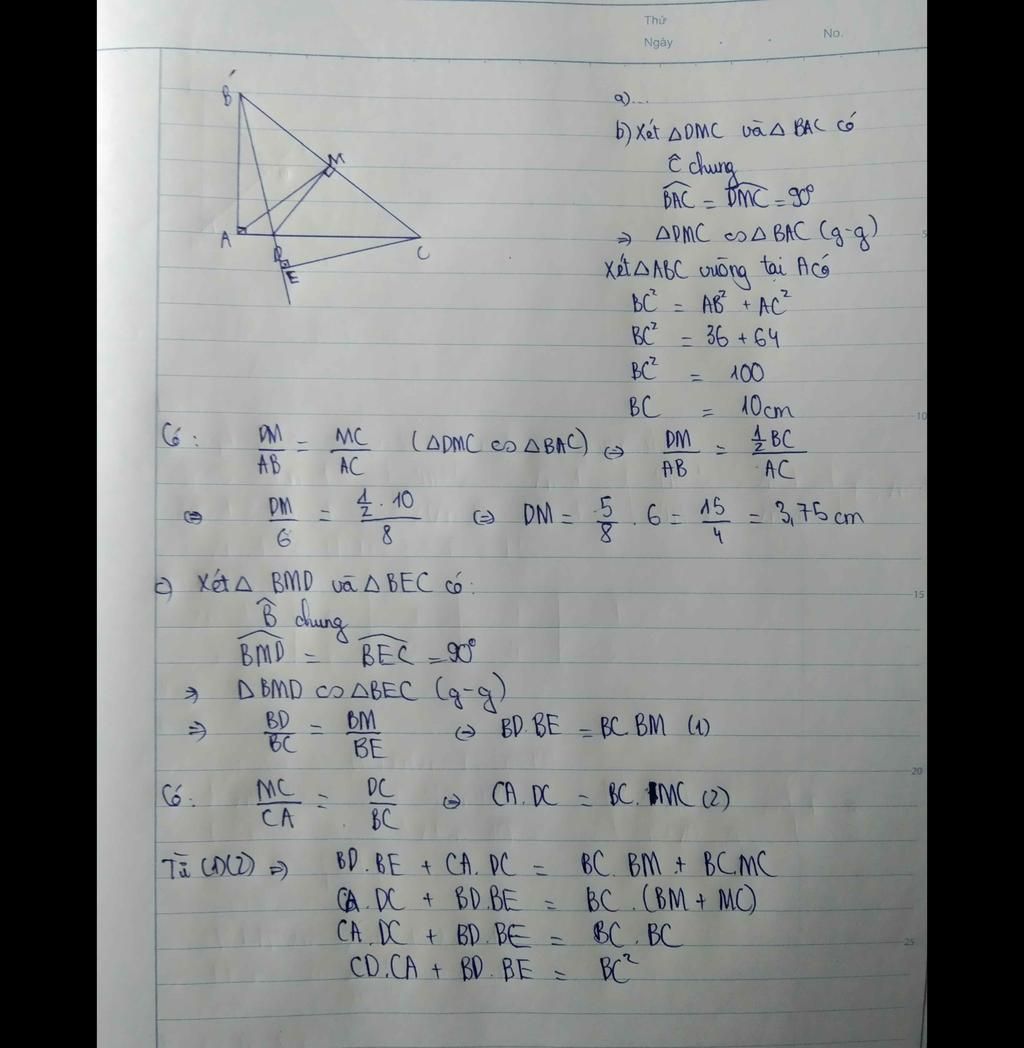 Thứ
Ngày . . No.
B
M
A
D
E
C
a)...
b) Xét △DMC và △BAC có
Ĉ chung
BAC = DMC = 90°
⇒ △DMC ∽ △BAC (g-g)
Xét △ABC vuông tại A có
BC² = AB² + AC²
BC² = 36 + 64
BC² = 100
BC = 10cm
Có: DM/AB = MC/AC (△DMC ∽ △BAC) ⇔ DM/AB = ½BC/AC
⇔ DM/6 = ½.10/8 ⇔ DM = 5/8 . 6 = 15/4 = 3,75cm
c) Xét △ BMD và △BEC có:
B̂ chung
BMD = BEC = 90°
⇒ △BMD ∽ △BEC (g-g)
⇒ BD/BC = BM/BE ⇔ BD.BE = BC.BM (1)
Có: MC/CA = DC/BC ⇔ CA.DC = BC.MC (2)
Từ (1)(2) ⇒ BD.BE + CA.DC = BC.BM + BC.MC
CA.DC + BD.BE = BC.(BM + MC)
CA.DC + BD.BE = BC.BC
CD.CA + BD.BE = BC²
5
10
15
20
25